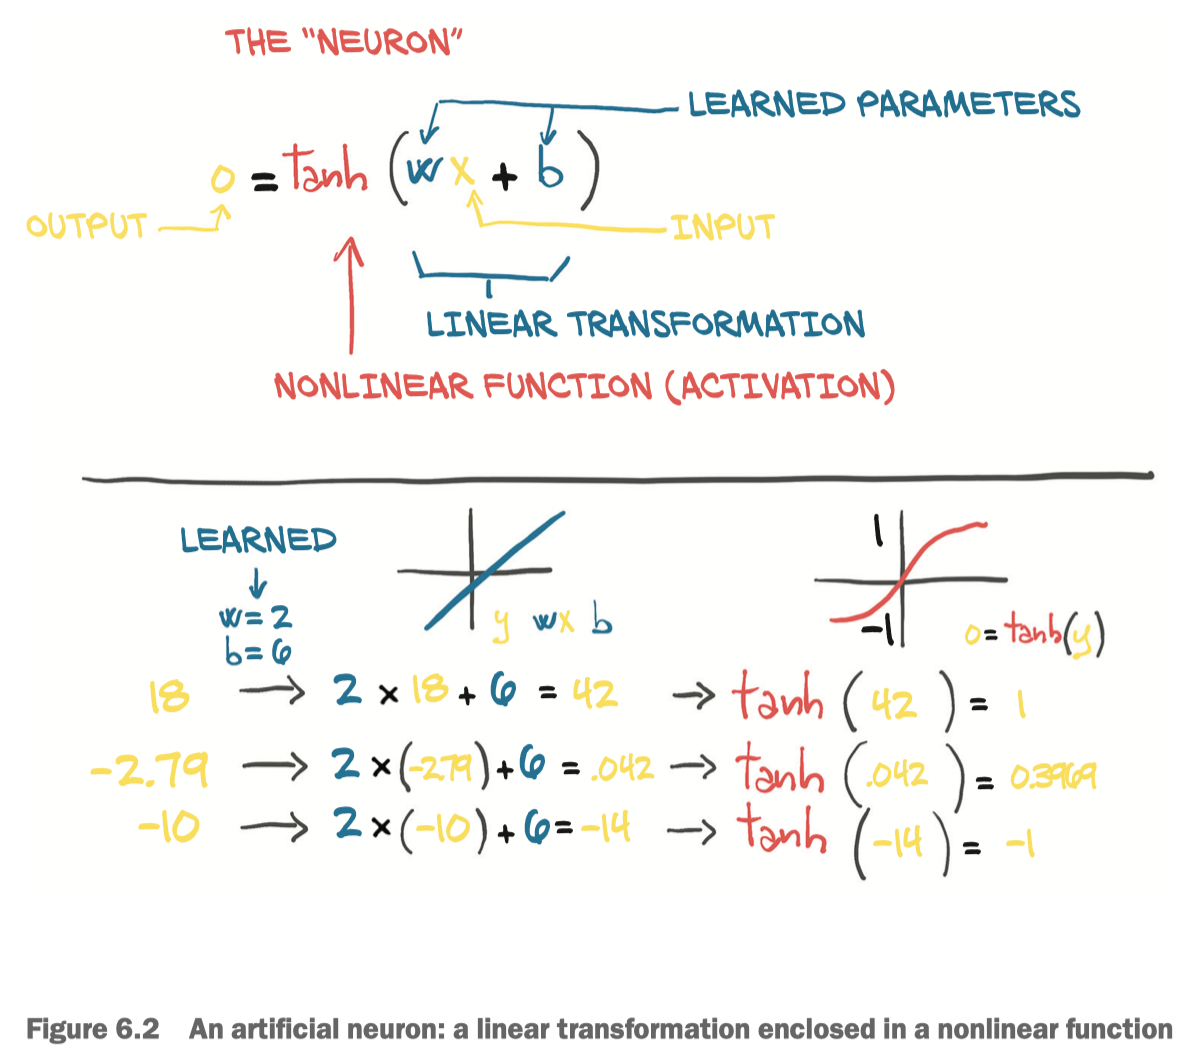 THE "NEURON"
LEARNED PARAMETERS
o = tanh (wx + b)
OUTPUT
INPUT
LINEAR TRANSFORMATION
NONLINEAR FUNCTION (ACTIVATION)
LEARNED
w=2
b=6
y wx b
1
-1
o=tanh(y)
18 → 2 × 18 + 6 = 42 → tanh (42) = 1
-2.79 → 2 ×(-2.79)+6 = .042 → tanh (.042) = 0.3969
-10 → 2 ×(-10)+6=-14 → tanh (-14) = -1
Figure 6.2 An artificial neuron: a linear transformation enclosed in a nonlinear function